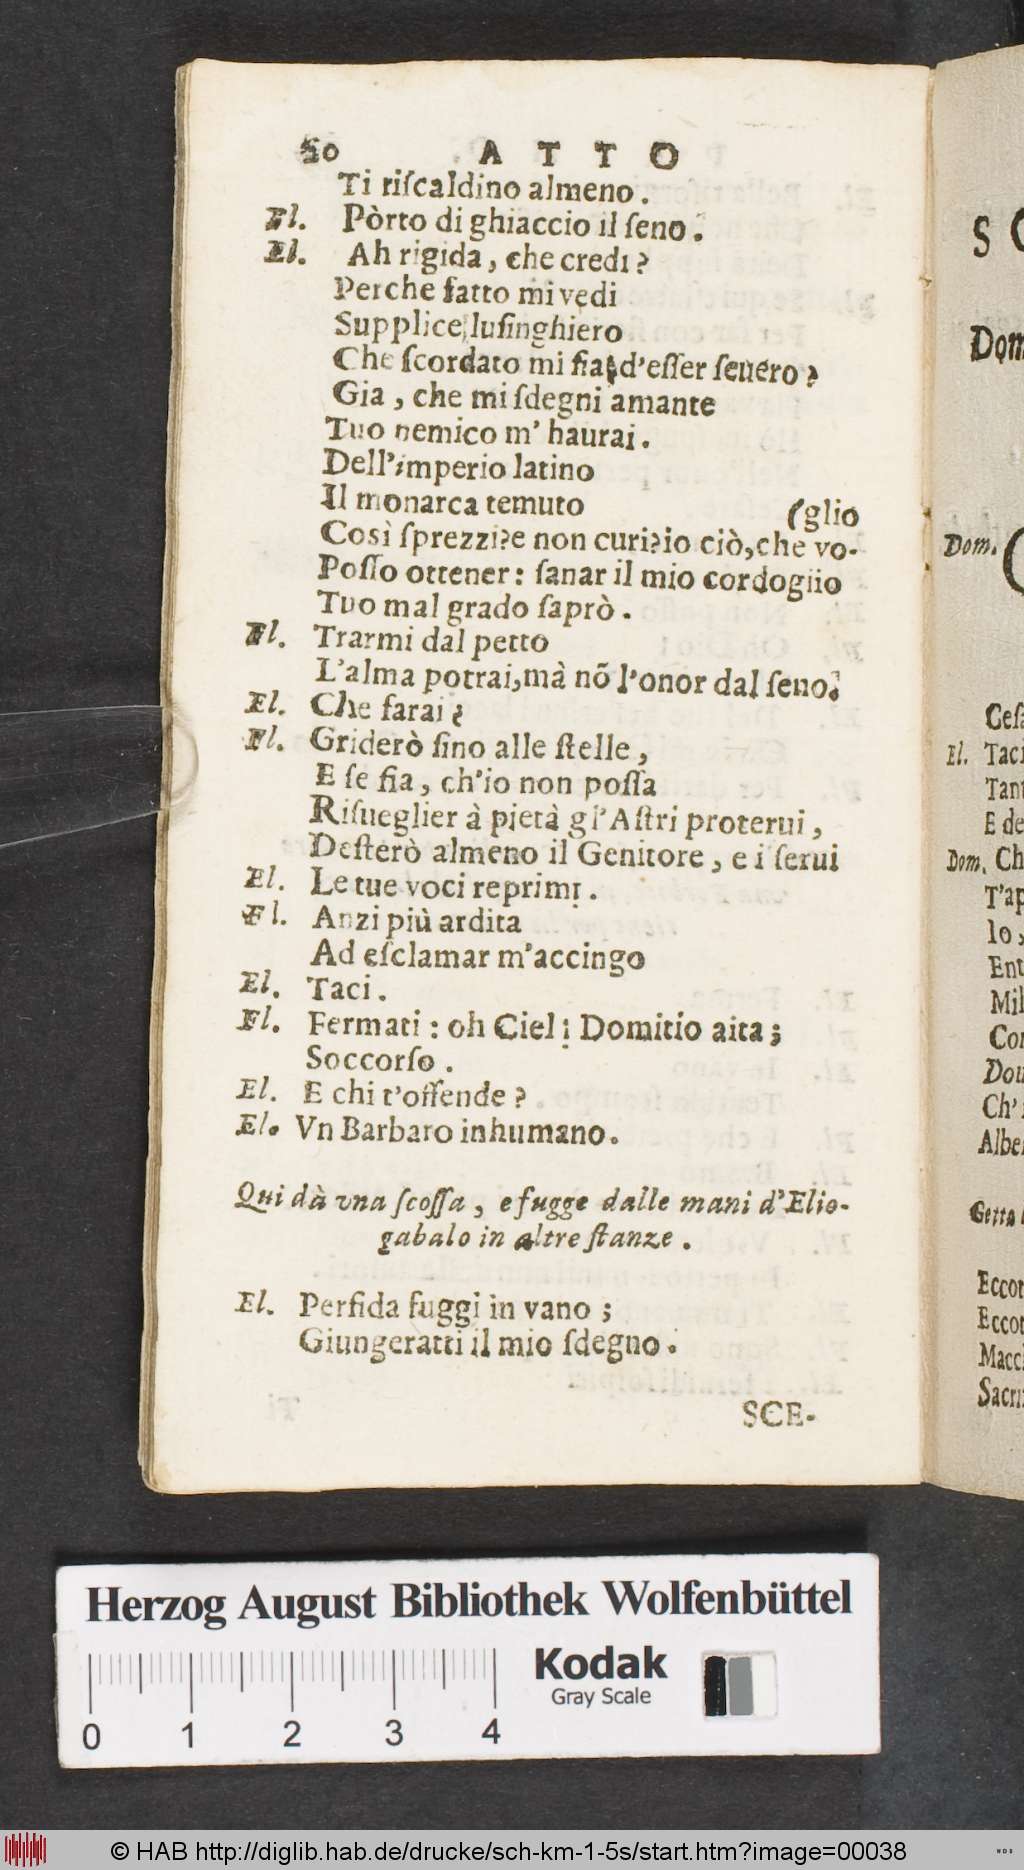 20 ATTO
Ti riſcaldino almeno.
Fl. Pòrto di ghiaccio il ſeno.
El. Ah rigida, che credi?
Perche fatto mi vedi
Supplice, luſinghiero
Che ſcordato mi ſia d'eſſer ſeuero?
Gia, che mi ſdegni amante
Tuo nemico m' haurai.
Dell'imperio latino
Il monarca temuto (glio
Così ſprezzi?e non curi?io ciò,che vo-
Poſſo ottener: ſanar il mio cordoglio
Tuo mal grado ſaprò.
Fl. Trarmi dal petto
L'alma potrai,mà nõ l'onor dal ſeno.
El. Che farai?
Fl. Griderò ſino alle ſtelle,
E ſe fia, ch'io non poſſa
Riſueglier à pietà gl'Aſtri proterui,
Deſterò almeno il Genitore, e i ſerui
El. Le tue voci reprimi.
Fl. Anzi più ardita
Ad eſclamar m'accingo
El. Taci.
Fl. Fermati: oh Ciel; Domitio aita;
Soccorſo.
El. E chi t'offende?
El. Vn Barbaro inhumano.
Qui dà vna ſcoſſa, e fugge dalle mani d'Elio-
gabalo in altre ſtanze.
El. Perfida fuggi in vano;
Giungeratti il mio ſdegno.
SCE-
S
Dom
Dom.
Ceſa
El. Taci
Tant
E de
Dom. Ch
T'ap
Io,
Ent
Mil
Con
Dou
Ch'
Albe
Getta
Eccon
Eccon
Macch
Sacri
Herzog August Bibliothek Wolfenbüttel
Kodak
Gray Scale
0 1 2 3 4
© HAB http://diglib.hab.de/drucke/sch-km-1-5s/start.htm?image=00038